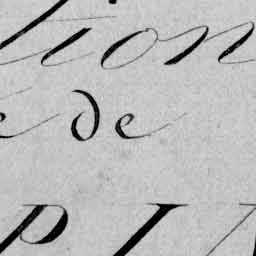 tion
e de
PIN